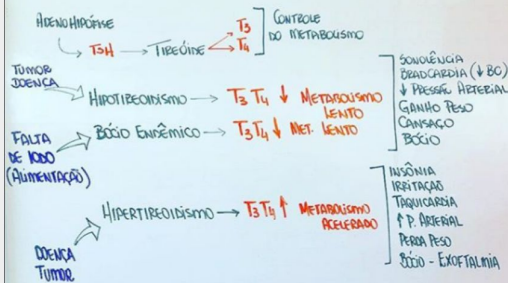 ADENOHIPÓFISE
TSH → TIREÓIDE
T3
T4
CONTROLE
DO METABOLISMO
TUMOR
DOENÇA
HIPOTIREOIDISMO → T3 T4 ↓ METABOLISMO
LENTO
BÓCIO ENDÊMICO → T3 T4 ↓ MET. LENTO
FALTA
DE IODO
(ALIMENTAÇÃO)
SONOLÊNCIA
BRADCARDIA (↓ BC)
↓ PRESSÃO ARTERIAL
GANHO PESO
CANSAÇO
BÓCIO
HIPERTIREOIDISMO → T3 T4 ↑ METABOLISMO
ACELERADO
DOENÇA
TUMOR
INSÔNIA
IRRITAÇÃO
TAQUICARDIA
↑ P. ARTERIAL
PERDA PESO
BÓCIO - EXOFTALMIA